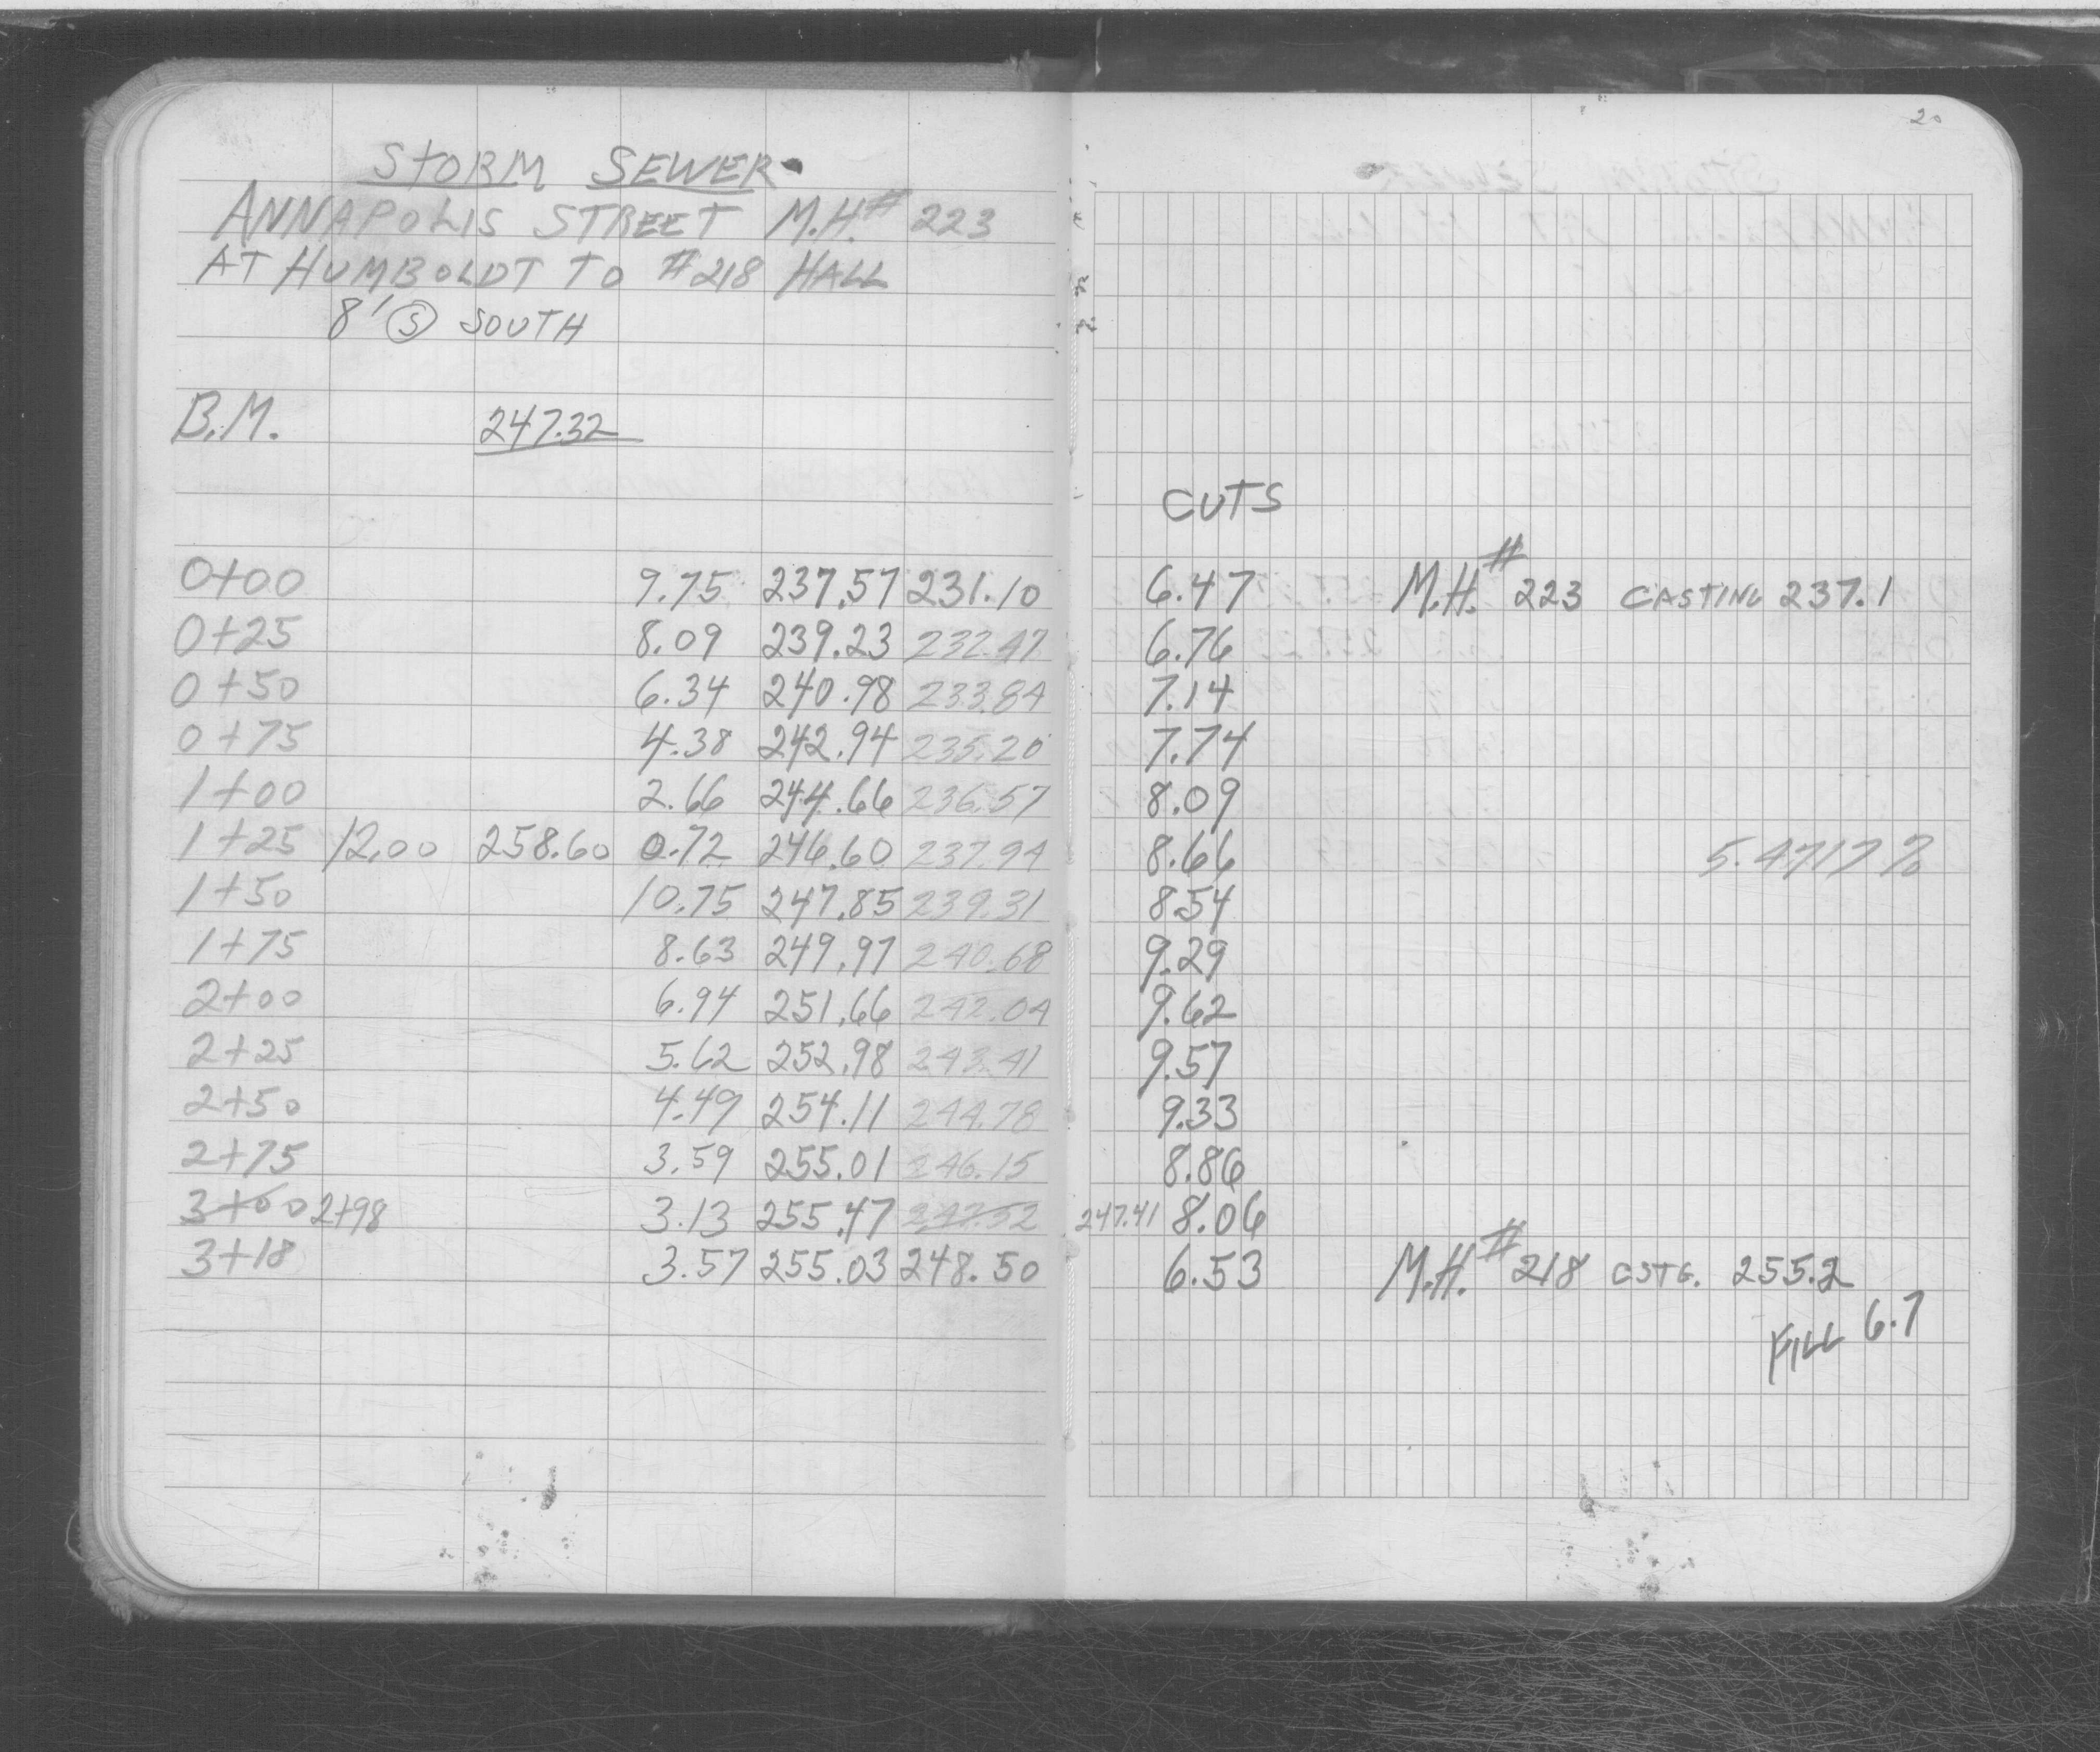 STORM SEWER
ANNAPOLIS STREET M.H.# 223
AT HUMBOLDT TO #218 HALL
8' Ⓢ SOUTH
B.M. 247.32
0+00 9.75 237.57 231.10
0+25 8.09 239.23 232.47
0+50 6.34 240.98 233.84
0+75 4.38 242.94 235.20
1+00 2.66 244.66 236.57
1+25 12.00 258.60 0.72 246.60 237.94
1+50 10.75 247.85 239.31
1+75 8.63 249.97 240.68
2+00 6.94 251.66 242.04
2+25 5.62 252.98 243.41
2+50 4.49 254.11 244.78
2+75 3.59 255.01 246.15
3+00 2+98 3.13 255.47 247.52
3+18 3.57 255.03 248.50
20
CUTS
6.47 M.H.# 223 CASTING 237.1
6.76
7.14
7.74
8.09
8.66 5.4717%
8.54
9.29
9.62
9.57
9.33
8.86
247.41 8.06
6.53 M.H.# 218 CSTG. 255.2
FILL 6.7